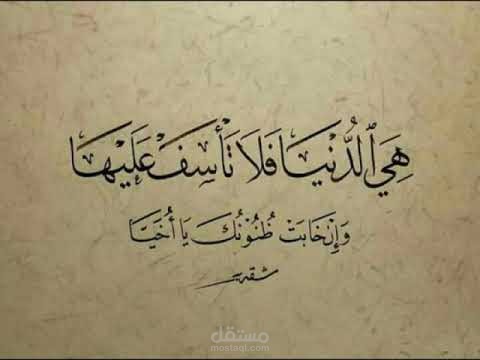 هِيَ ٱلدُّنْيَا فَلَا تَأْسَفْ عَلَيْهَا
وَإِنْ خَابَتْ ظُنُوْنُكَ يَا أُخَيَّا
شقير
مستقل
mostaql.com